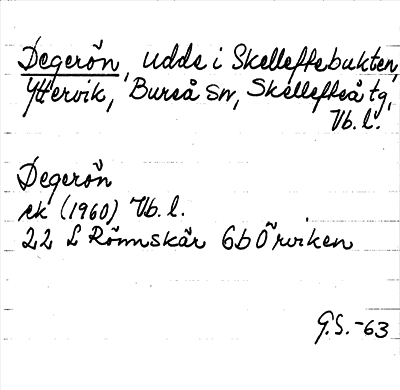 Degerön, udde i Skelleftebukten,
Yttervik, Bureå sn, Skellefteå tg,
Vb. l.
Degerön
ek (1960) Vb. l.
22 L Rönnskär 6b Örviken
G.S. -63